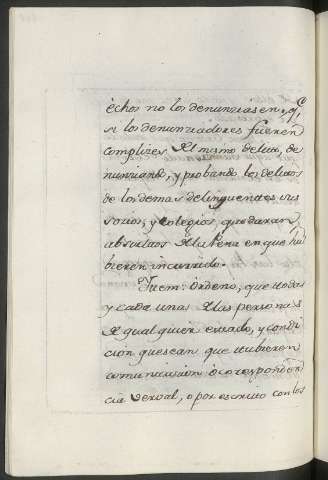 échos no los denunziasen; y q.ᵉ
si los denunziadores fueren
complizes del mismo delito, de
nunziando, y probando los delitos
de los demas delinguentes sus
socios, y Colegios, quedaran
absueltos de la Pena en que hu
bieren incurrido.
Ytem: Ordeno, que todas
y cada una de las personas
de qual quier estado, y condi
cion que sean que tubieren
comunicacion ó corresponden
cia verval, o por escrito con los